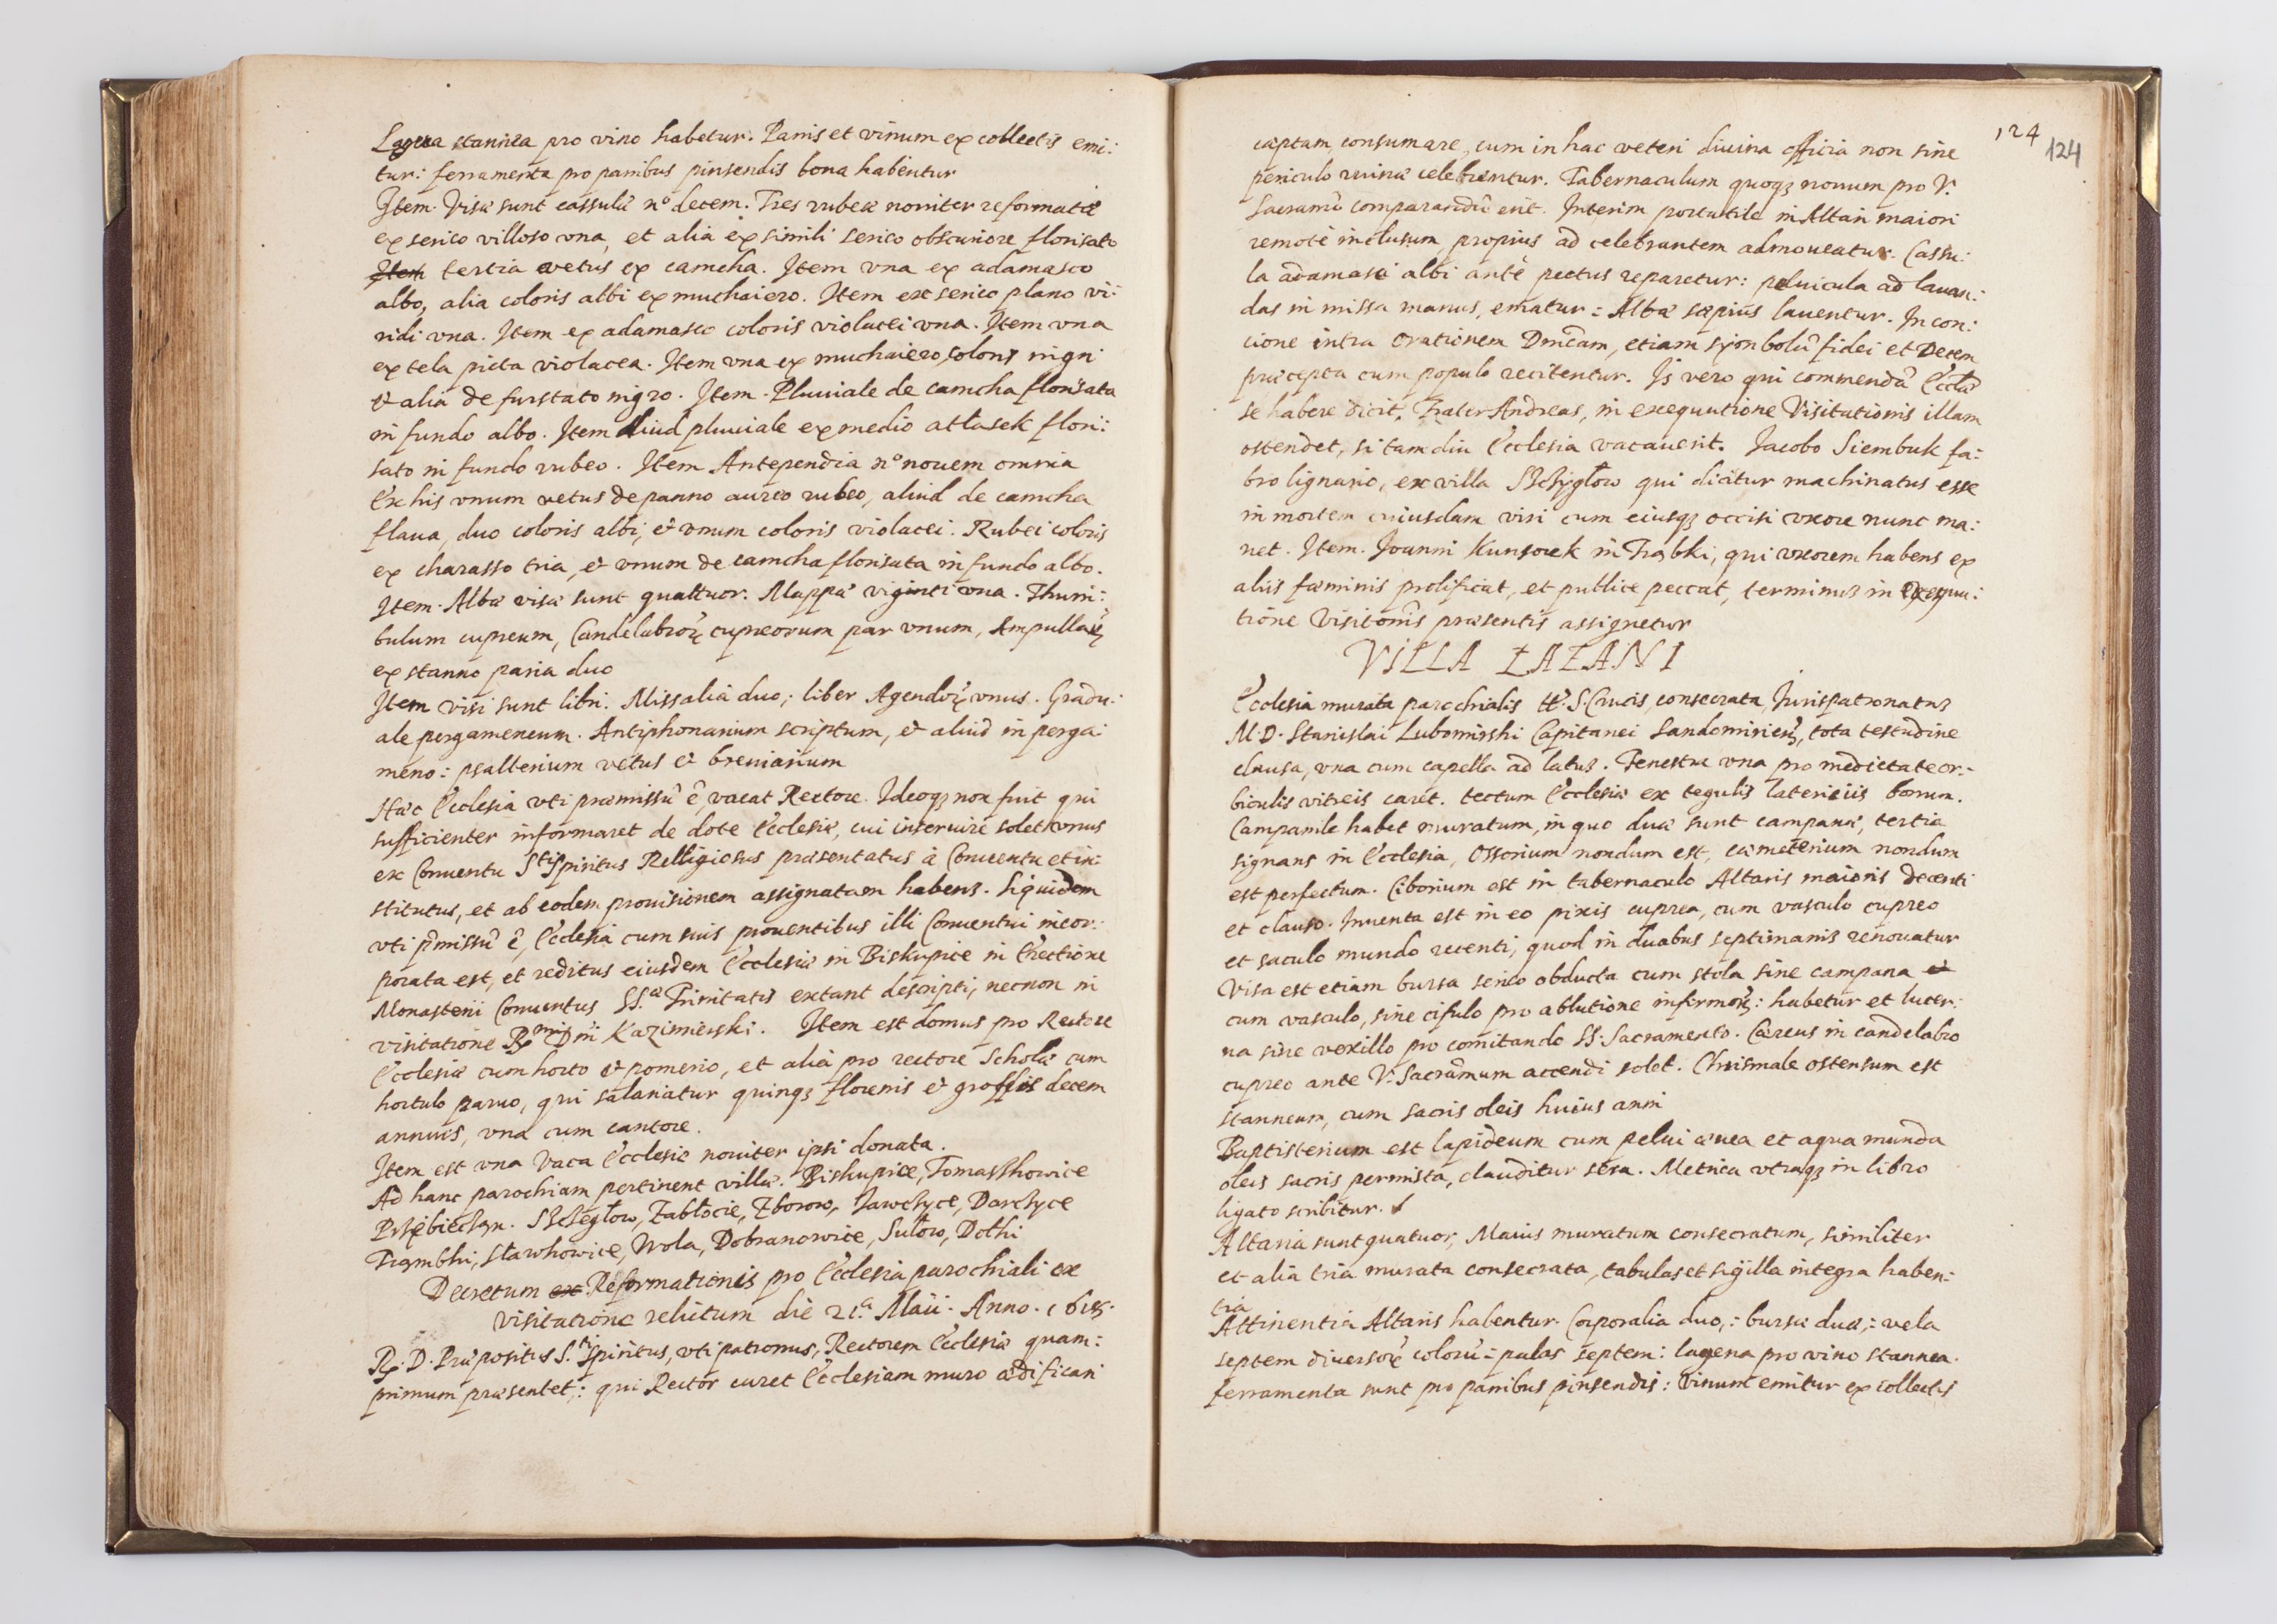 Lagena stannea pro vino habetur. Panis et vinum ex collectis emi:
tur: ferramenta pro panibus pinsendis bona habentur
Item. Visæ sunt cassulæ nº decem. Tres rubeæ noviter reformatæ
ex serico villoso vna, et alia ex simili serico obscuriore florisato
Item tertia vetus ex camcha. Item vna ex adamasco
albo, alia coloris albi ex muchaiero. Item ex serico plano vi:
ridi vna. Item ex adamasco coloris violacei vna. Item vna
ex tela picta violacea. Item vna ex muchaiero coloris nigri
& alia de furstato nigro. Item. Pluuiale de camcha florisata
in fundo albo. Item aliud pluuiale ex medio atłasek flori:
sato in fundo rubeo. Item Antependia nº nouem omnia
Ex his vnum vetus de panno aureo rubeo, aliud de camcha
flaua, duo coloris albi, & vnum coloris violacei. Rubei coloris
ex charasso tria, & vnum de camcha florisata in fundo albo.
Item. Albæ visæ sunt quattuor. Mappæ viginti vna. Thuri:
bulum cupreum, Candelabroꝝ cupreorum par vnum, Ampullaꝝ
ex stanno paria duo
Item visi sunt libri. Missalia duo,; liber Agendoꝝ vnus. Gradu:
ale pergameneum. Antiphonarium scriptum, & aliud in perga:
meno: psalterium vetus & breuiarium
Hæc Ecclesia vti præmissũ ẽ, vacat Rectore. Ideoqꝫ non fuit qui
sufficienter informaret de dote Ecclesiæ, cui inseruire solet vnus
ex Conuentu Sti Spiritus Relligiosus præsentatus à Conuentu et in:
stitutus, et ab eodem prouisionem assignatam habens. Siquidem
vti p̃missũ ẽ, Ecclesia cum suis prouentibus illi Conuentui incor:
porata est, et reditus eiusdem Ecclesiæ in Biskupice in Erectione
Monasterii Conuentus SS.æ Trinitatis extant descripti, necnon in
visitatione Rmi Dñi Kazimierski. Item est domus pro Rectore
Ecclesiæ cum horto & pomerio, et alia pro rectore Scholæ cum
hortulo paruo, qui salariatur quinqꝫ florenis & grossis decem
annuis, vna cum cantore.
Item est vna Vaca Ecclesiæ noviter ipsi donata.
Ad hanc parochiam pertinent villæ. Biskupice, Tomasskowice
Przebieczyn. Szczegłow, Zabłocie, Zborow, Jawczyce, Darczyce
Trąmbki, Sławkowice, Wola, Dobranowice, Sułow, Dołki
Decretum ex Reformationis pro Ecclesia parochiali ex
visitatione relictum die 21.a Maii. Anno. 1618.
R. D. Præpositus S.ti Spiritus, vti patronus, Rectorem Ecclesiæ quam:
primum præsentet,: qui Rector curet Ecclesiam muro ædificari
124
124
cæptam consumare, cum in hac veteri diuina officia non sine
periculo ruinæ celebrentur. Tabernaculum quoqꝫ nouum pro V.
Sacramẽ comparandũ erit. Interim portatile in Altari maiori
remotè inclusum, propius ad celebrantem admoueatur. Cassu:
la adamasci albi antè pectus reparetur: peluicula ad lauan:
das in missa manus, ematur: Albæ sæpius lauentur. In con:
cione intra orationem Dnĩcam, etiam symbolũ fidei et Decem
præcepta cum populo recitentur. Is vero qui commendã Eccłæ
se habere dicit, Frater Andreas, in exequutione Visitationis illam
ostendet, si tam diu Ecclesia vacauerit. Jacobo Siembuk fa:
bro lignario, ex villa Szczygłow qui dicitur machinatus esse
in mortem cuiusdam viri cum eiusqꝫ occisi vxore nunc ma:
net. Item. Joanni Kunsorek in Trąbki, qui vxorem habens ex
aliis fæminis prolificat, et publice peccat, terminus in exequu:
tione Visitõnis præsentis assignetur
VILLA ŁAZANI
Ecclesia murata parochialis tt. S. Crucis, consecrata, Jurispatronatus
M. D. Stanislai Lubomirski Capitanei Sandomirieñ, tota testudine
clausa, vna cum capella ad latus. Fenestra vna pro medietate or:
biculis vitreis caret. tectum Ecclesiæ ex tegulis lateriiis bonum.
Campanile habet muratum, in quo duæ sunt campanæ, tertia
signans in Ecclesia, Ossorium nondum est, cæmeterium nondum
est perfectum. Ciborium est in tabernaculo Altaris maioris decenti
et clauso. Inuenta est in eo pixis cuprea, cum vasculo cupreo
et saculo mundo recenti, quod in duabus septimanis renouatur
Visa est etiam bursa serico obducta cum stola sine campana et
cum vasculo, sine cifulo pro ablutione infirmoꝝ: habetur et lucer:
na sine vexillo pro comitando SS: Sacramento. Cæreus in candelabro
cupreo ante V. Sacrãmum accendi solet. Chrismale ostensum est
stanneum, cum sacris oleis huius anni
Baptisterium est lapideum cum pelui ænea et aqua munda
oleis sacris permista, clauditur sera. Metrica vtraqꝫ in libro
ligato scribitur.
Altaria sunt quatuor, Maius muratum consecratum, similiter
et alia tria murata consecrata, tabulas et sigilla integra haben:
tia
Attinentia Altaris habentur. Corporalia duo,: bursæ duæ,: vela
septem diuersorũ colorũ: palas septem: lagena pro vino stannea.
ferramenta sunt pro panibus pinsendis: vinum emitur ex collectis